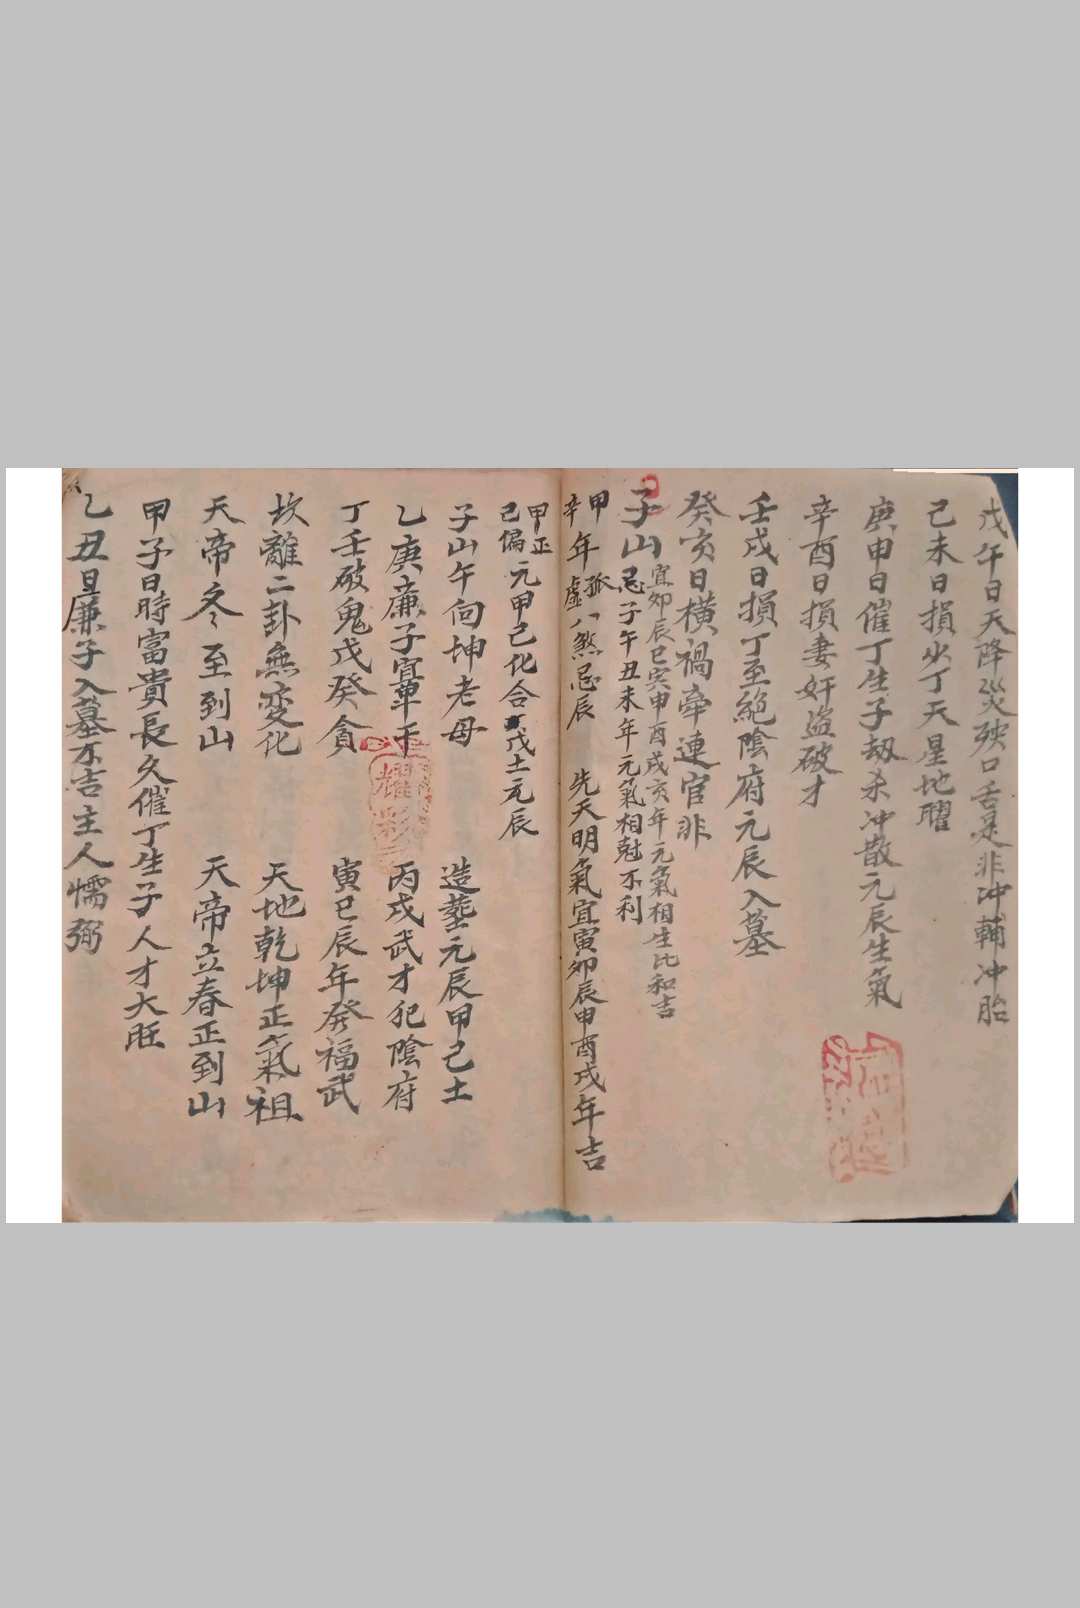 戊午日天降災殃口舌是非冲輔冲胎
己未日損少丁天星地曜
庚申日催丁生子劫杀冲散元辰生氣
辛酉日損妻奸盜破才
壬戌日損丁至絕陰府元辰入墓
癸亥日橫禍牽連官非
子山
宜卯辰巳寅申酉戌亥年元氣相生比和吉
忌子午丑未年元氣相尅不利
甲辛年孤虛八煞忌辰 先天明氣宜寅卯辰申酉戌年吉
甲正己偏元甲己化合戊土元辰
子山午向坤老母 造塟元辰甲己土
乙庚廉子宜單干 丙戌武才犯陰府
丁壬破鬼戊癸貪 寅巳辰年發福武
坎離二卦無变化 天地乾坤正氣祖
天帝冬至到山 天帝立春正到山
甲子日時富貴長久催丁生子人才大旺
乙丑日廉子入墓不吉主人懦弱
耀